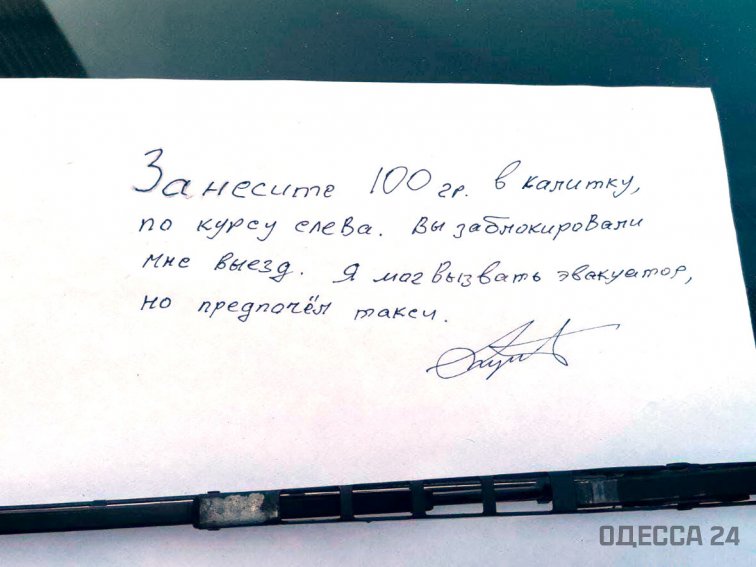 Занесите 100 гр. в калитку,
по курсу слева. Вы заблокировали
мне выезд. Я мог вызвать эвакуатор,
но предпочёл такси.
ОДЕССА 24